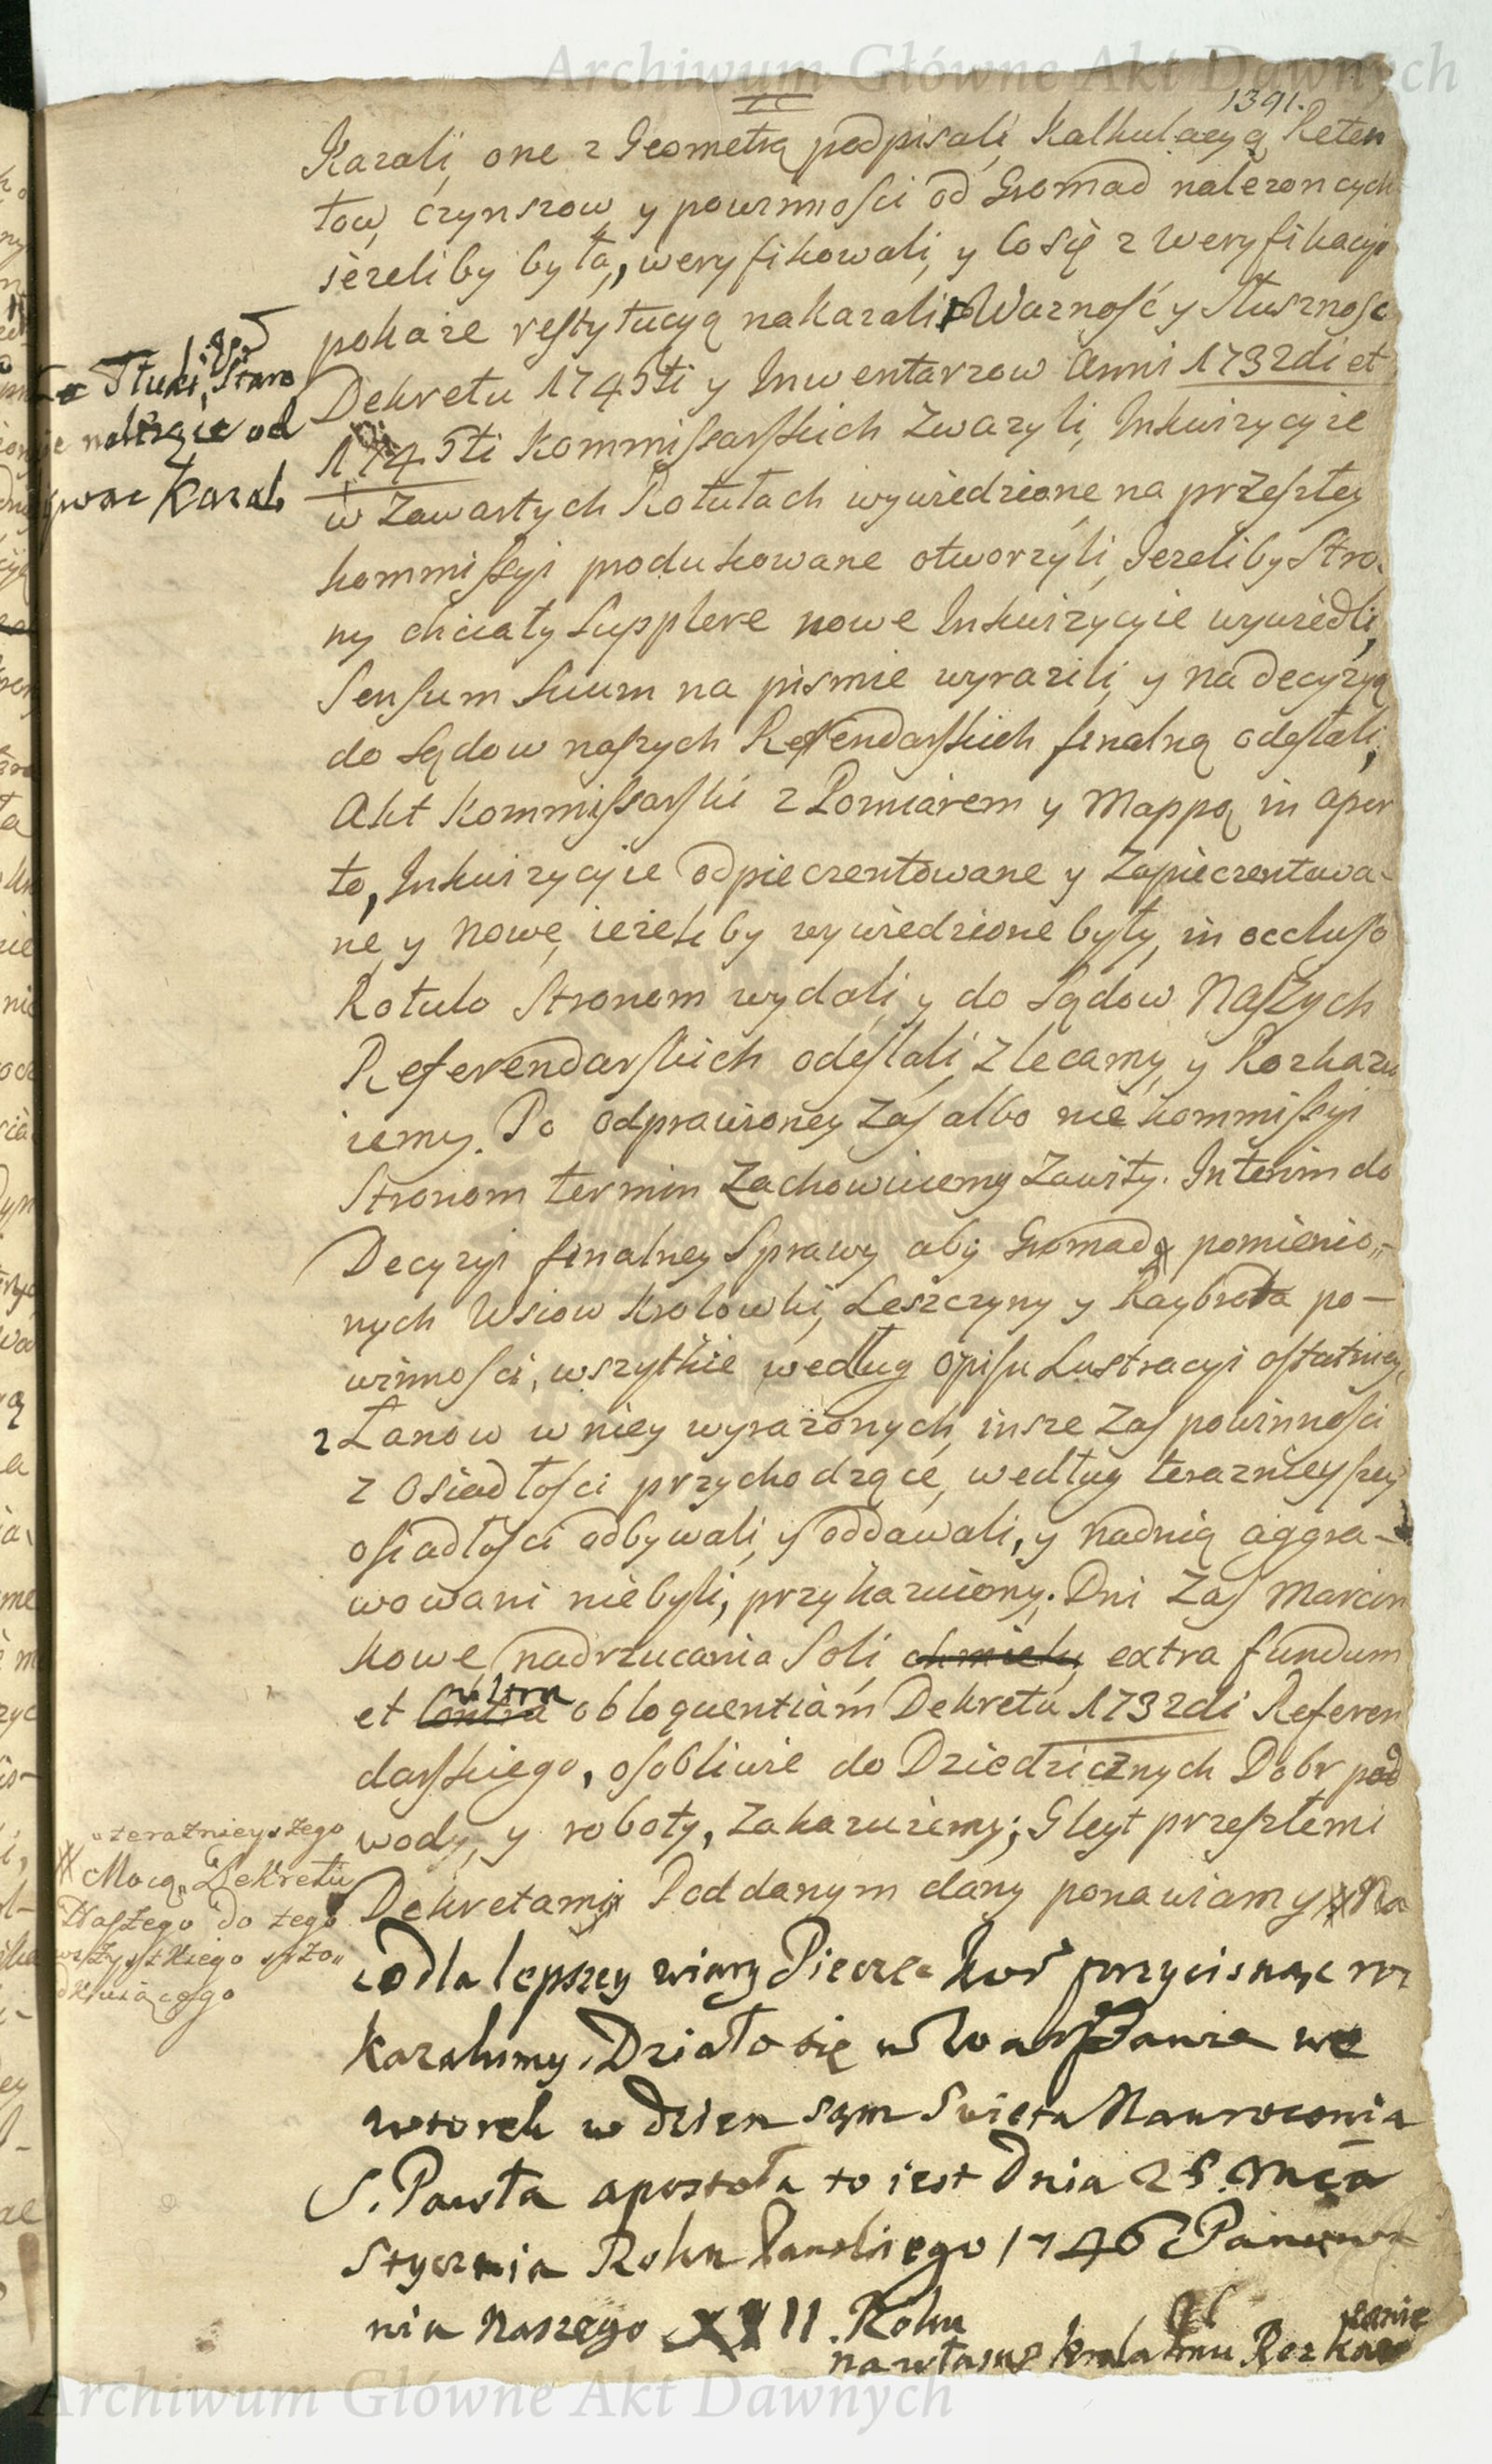 Archiwum Główne Akt Dawnych
1391.
Kazali, one z Geometrą podpisali, Kalkulacyą Reten
tow, czynszow, y powinnosci od Gromad nalezoncych
jezeliby była, weryfikowali, y co się z weryfikacyi
pokaze restytucyą nakazali, Wazność y słusznosc
Dekretu 1745ti y Inwentarzow Anni 1732di et
1745ti Kommissarskich zwazyli, Inkwizycyie
w zawartych Rotułach wywiedzione, na przeszłey
kommissyi produkowane otworzyli, Jezeliby Stro-
ny chciały Supplere nowe Inkwizycyie wywiedli,
Sensum Suum na pismie wyrazili, y na decyzyą
do Sądow naszych Referendarskich finalną odesłali,
Akt Kommissarski z Pomiarem y Mappą in aper
to, Inkwizycyie odpieczentowane y zapieczentowa-
ne, y nowe, iezeliby wywiedzione były, in occluso
Rotulo Stronom wydali, y do Sądow Naszych
Referendarskich odesłali, zlecamy, y Rozkazu
iemy. Po odprawioney zas albo nie kommissyi
Stronom termin zachowuiemy zawity. Interim do
Decyzyi finalney Sprawy aby Gromady pomienio-
nych Wsiow Krolowki, Leszczyny y Raybrota po-
winności, wszytkie według opisu Lustracyi ostatniey,
z Łanow w niey wyrazonych, insze zas powinności
z osiadłosci przychodzące, według teraznieyszey
osiadłosci odbywali, y oddawali, y nadnią aggra-
wowani niebyli, przykazuiemy. Dni zas Marcin
kowe, nadrzucania Soli, chmielu, extra fundum
et Contra ultra obloquentiam Dekretu 1732di Referen
darskiego, osobliwie do Dziedzicznych Dobr pod
wody, y roboty, zakazuiemy; Gleyt przeszłemi
Dekretami Poddanym dany ponawiamy # Na
co dla lepszey wiary Pieczęć kor przycisnąc roz
kazalismy. Działo się w Warszawie we
wtorek w dzien sam Swięta Nawrocenia
S. Pawła apostoła to iest Dnia 25 Mca
Stycznia Roku Panskiego 1746 Panowa
nia Naszego XXII. Roku
na własne krola Jmci Rozkazanie
należcie od
kazali
teraznieyszego
# Mocą Dekretu
Naszego do tego
wszystkiego
Archiwum Główne Akt Dawnych